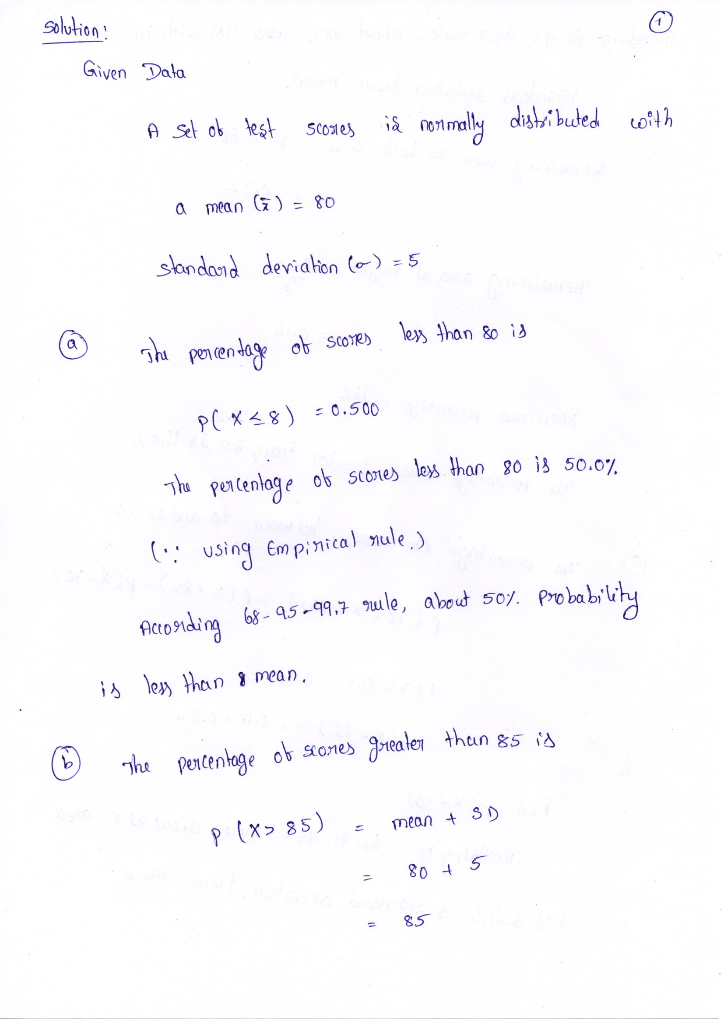 Solution:
1
Given Data
A set of test scores is normally distributed with
a mean (x̄) = 80
standard deviation (σ) = 5
a The percentage of scores less than 80 is
P( X ≤ 8) = 0.500
The percentage of scores less than 80 is 50.0%
(∵ using Empirical rule.)
According 68-95-99.7 rule, about 50% probability
is less than mean.
b The percentage of scores greater than 85 is
P (X > 85) = mean + SD
= 80 + 5
= 85